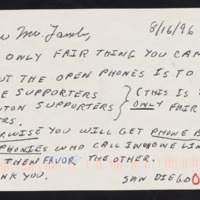 Mr. Lamb, 8/16/96
ONLY FAIR THING YOU CAN
UT THE OPEN PHONES IS TO
E SUPPORTERS } (THIS IS T
TON SUPPORTERS } ONLY FAIR
ERS.
RWISE YOU WILL GET PHONE B
PHONIES WHO CALL IN ON ONE LIN
THEN FAVOR THE OTHER.
NK YOU. SAN DIEGO